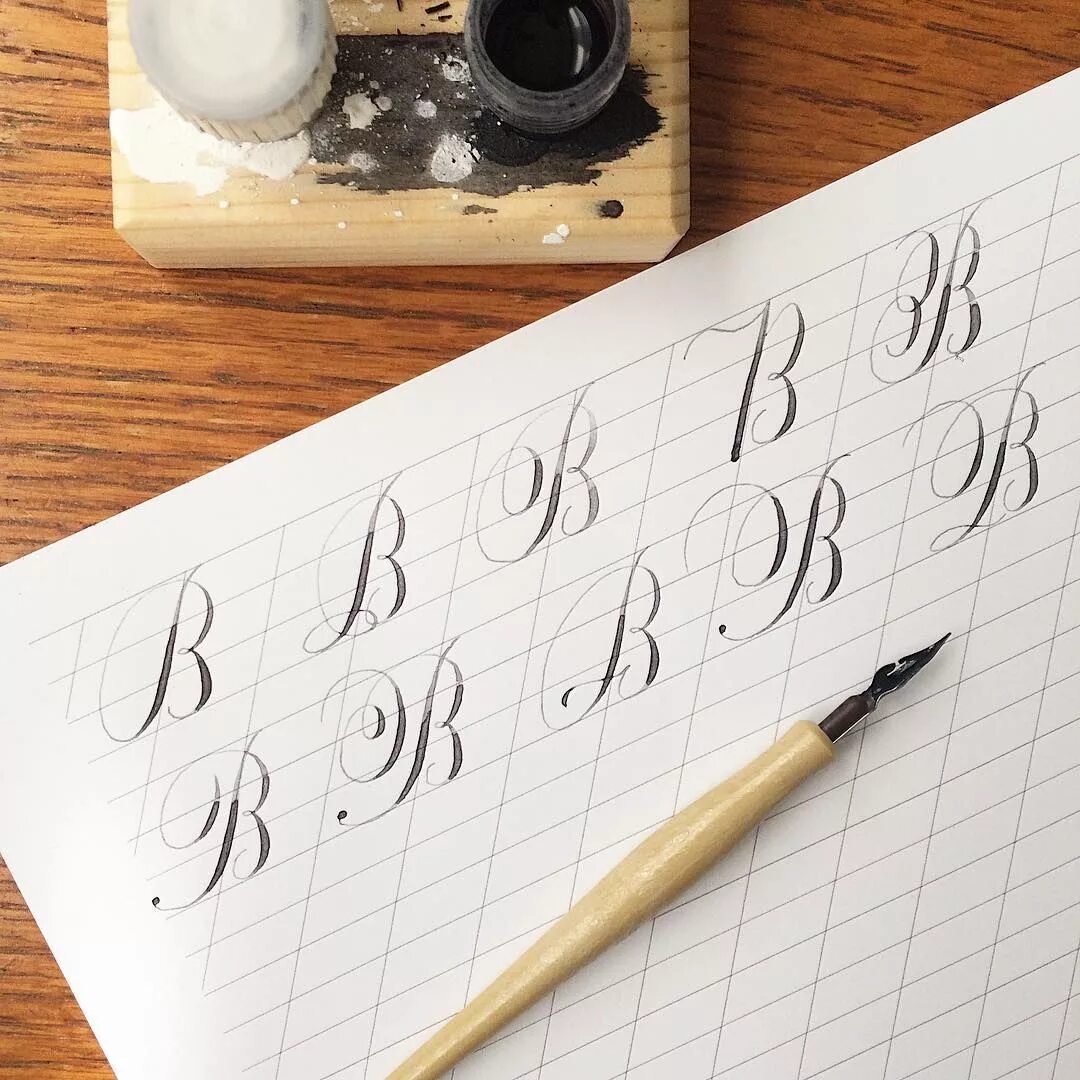 B B B B B
B B B B B